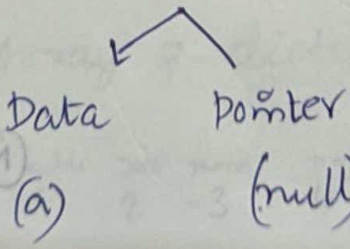 Data pointer
(a) (null)